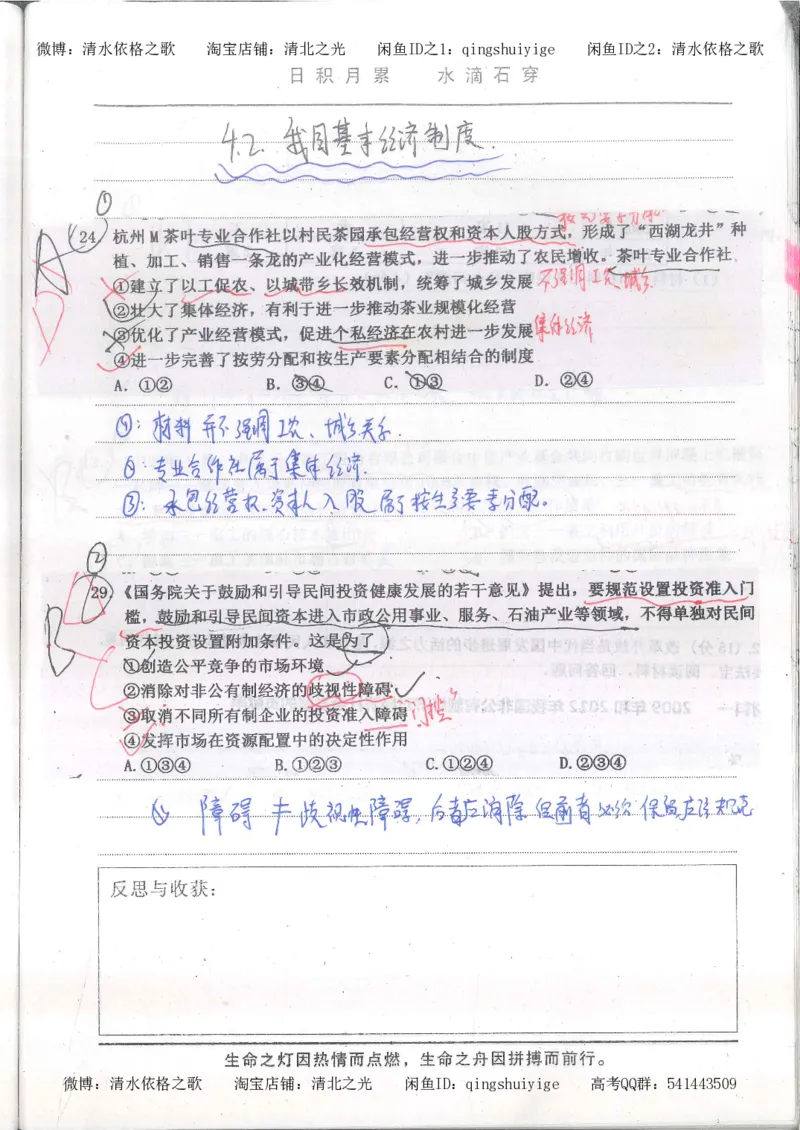 微博：清水依格之歌 淘宝店铺：清北之光 闲鱼ID之1：qingshuiyige 闲鱼ID之2：清水依格之歌
日积月累 水滴石穿
4.2. 我国基本经济制度.
①
24 杭州M茶叶专业合作社以村民茶园承包经营权和资本入股方式，形成了“西湖龙井”种
植、加工、销售一条龙的产业化经营模式，进一步推动了农民增收。茶叶专业合作社
A
D
①建立了以工促农、以城带乡长效机制，统筹了城乡发展 不强调工农城乡
②壮大了集体经济，有利于进一步推动茶业规模化经营
③优化了产业经营模式，促进个私经济在农村进一步发展 集体经济
④进一步完善了按劳分配和按生产要素分配相结合的制度
A. ①② B. ③④ C. ①③ D. ②④
①：材料并不强调工农、城乡关系.
②专业合作社属于集体经济
③：承包经营权.资本入股属于按生产要素分配。
②
29 《国务院关于鼓励和引导民间投资健康发展的若干意见》提出，要规范设置投资准入门
槛，鼓励和引导民间资本进入市政公用事业、服务、石油产业等领域，不得单独对民间
资本投资设置附加条件。这是为了
B
C
①创造公平竞争的市场环境
②消除对非公有制经济的歧视性障碍
③取消不同所有制企业的投资准入障碍 门槛
④发挥市场在资源配置中的决定性作用
A.①③④ B.①②③ C.①②④ D.②③④
障碍≠歧视性障碍，后者应消除但前者必须保留
反思与收获：
生命之灯因热情而点燃，生命之舟因拼搏而前行。
微博：清水依格之歌 淘宝店铺：清北之光 闲鱼ID：qingshuiyige 高考QQ群：541443509